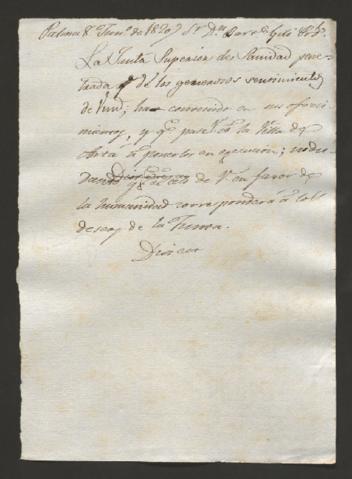 Palma 8 Jun.º de 1820 Sr. Dn.
La Junta Superior de Sanidad pene-
trada de los generosos sentimientos
de Vmd; ha convenido en su ofreci-
miento, y q.e pase V. a la Villa de
Arta a ponerlos en execucion; no du-
dando q.e el celo de V. en favor de
la humanidad correspondera a los
deseos de la Junta.
Dios &a